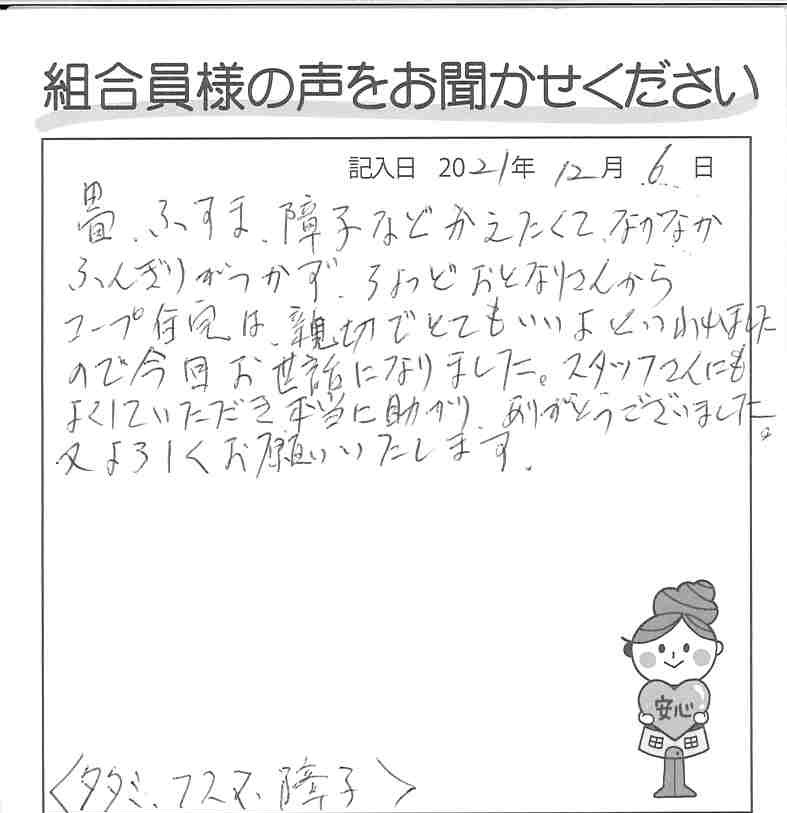 組合員様の声をお聞かせください
記入日 2021年 12月 6日
畳、ふすま、障子などかえたくて、なかなか
ふんぎりがつかず、ちょっどおとなりさんから
コープ住宅は、親切でとてもいいよといわれました
ので今回お世話になりました。スタッフさんにも
よくしていただき本当に助かり、ありがとうございました。
又よろしくお願いいたします。
安心
〈タタミ、フスマ、障子〉